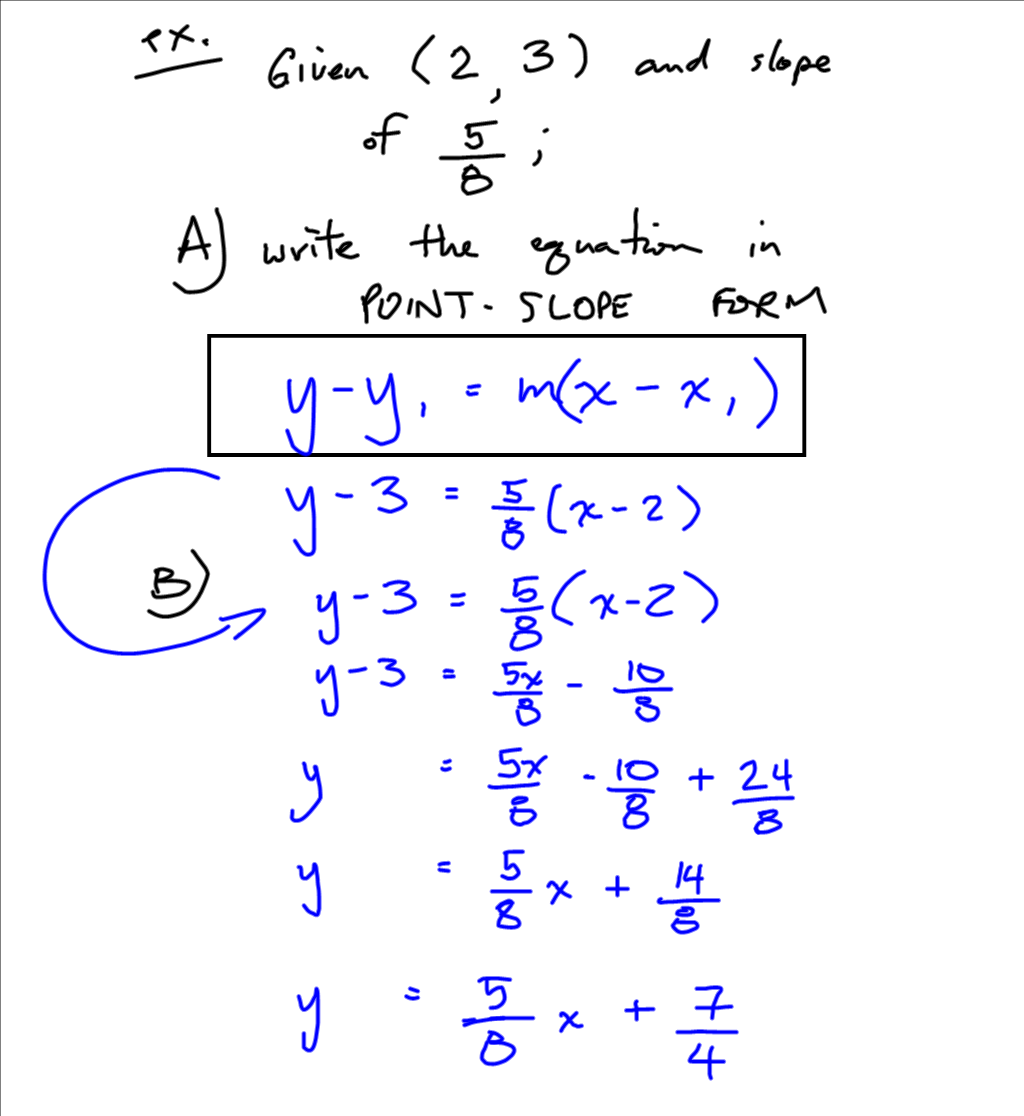 ex. Given (2, 3) and slope
of 5/8 ;
A) write the equation in
POINT-SLOPE FORM
y - y₁ = m(x - x₁)
y - 3 = 5/8 (x - 2)
B) y - 3 = 5/8 (x - 2)
y - 3 = 5x/8 - 10/8
y = 5x/8 - 10/8 + 24/8
y = 5/8 x + 14/8
y = 5/8 x + 7/4